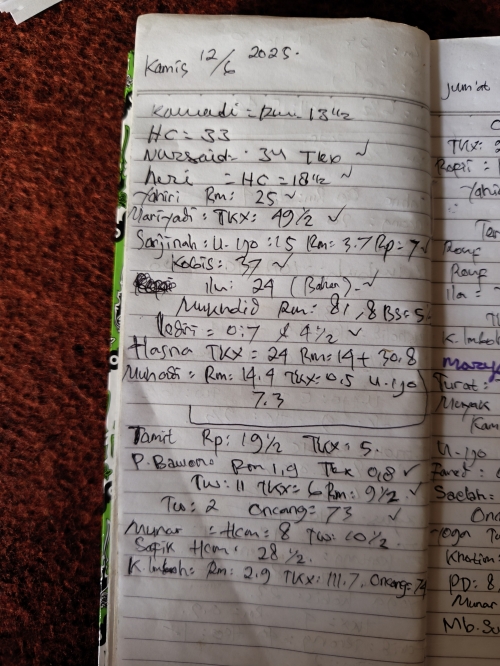 Kamis 12/6 2025.
Kamadi = Rm 13 1/2
HC = 33
Nursaid = 34 TKX ✓
heri = HC = 18 1/2 ✓
Yahiri Rm: 25 ✓
Mariyadi: TKX: 49 1/2 ✓
Sarjinah: U. ijo: 15 Rm= 3.7 Rp= 7 ✓
Kobis: 37 ✓
Ila: 24 (Bahan) ✓
Mukhdid Rm: 81,8 BS= 5.
= 0.7 & 4 1/2 ✓
Hasna TKX = 24 Rm= 14 + 30,8
Muhadi= Rm: 14.4 TKX= 0.5 U. ijo
7.3
Tamit Rp: 19 1/2 TKX= 5.
P. Bawon Rm 1,9 TKX 0,8 ✓
Tw: 11 TKX= 6 Rm: 9 1/2 ✓
Tw: 2 Oncang= 73 ✓
Munar = Hcm= 8 Tw: 10 1/2.
Sopik Hcm: 28 1/2.
K. Imboh: Rm: 2.9 TKX: 111.7, Oncang= 74
Jumat
TKX: 2
Ropii =
Yahi
Rouf
Rouf
Ila =
K. Imboh
Turat:
Muyak
Kam
U. ijo
Saelah=
Onc
Yoga Tu
Khotim:
PD: 8,
Munar
Mb. Su